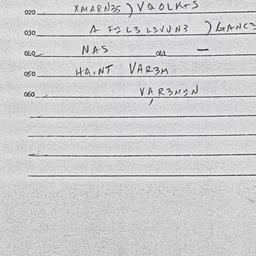 020 XMARN35 ) VQOLKTS
030 A F2L3 L3VUN3 ) GANC3
040 NAS 042 —
050 HAINT VAR3M
060 VAR3M2N